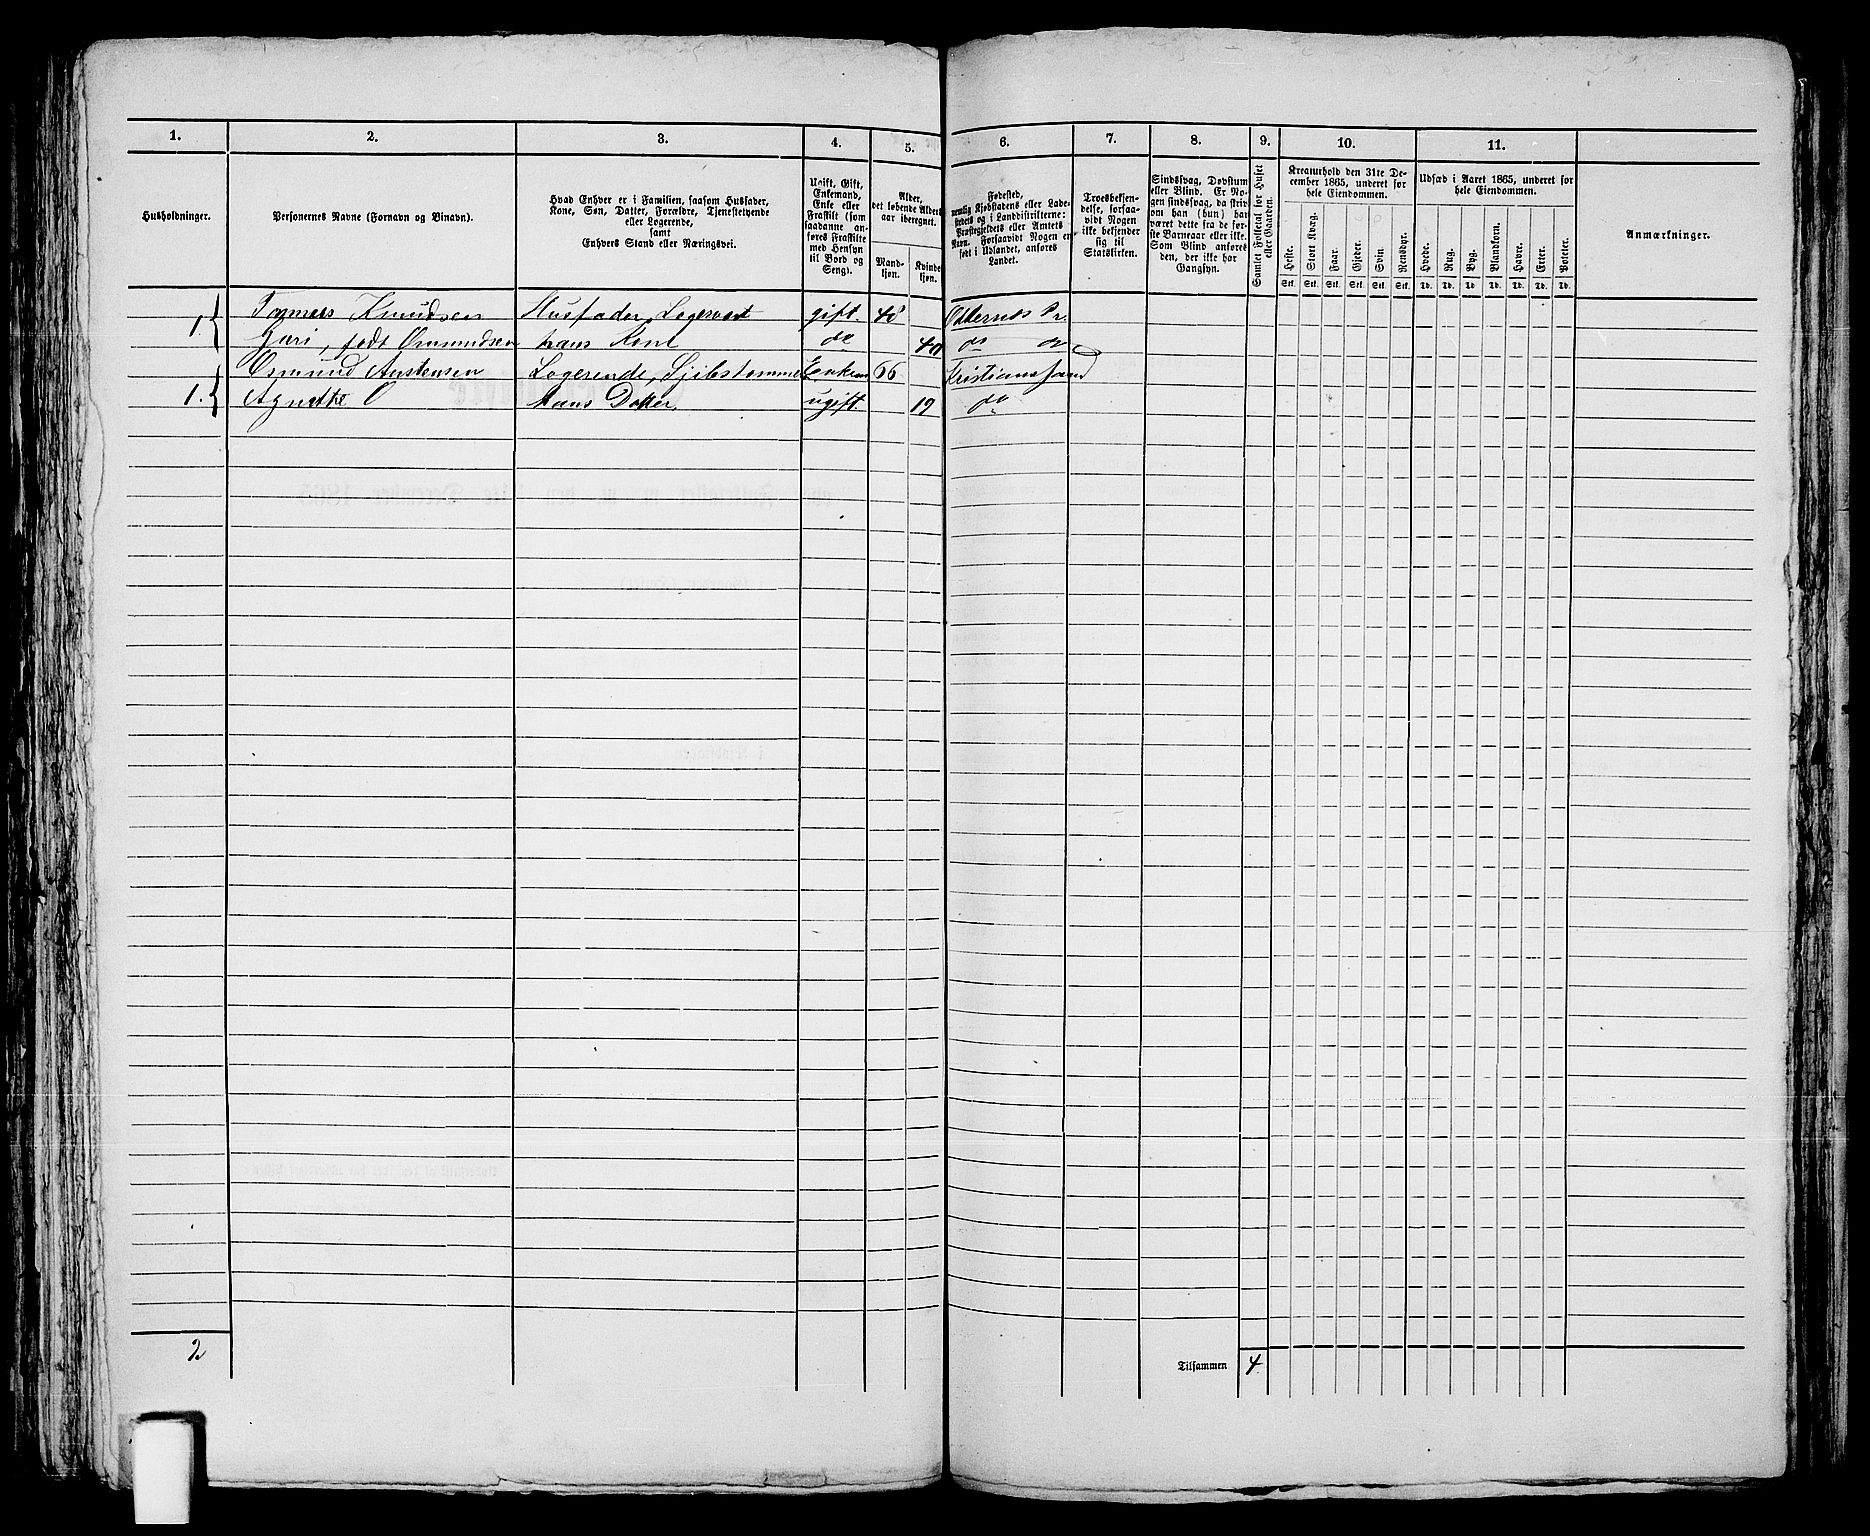 1. 2. 3. 4. 5. 6. 7. 8. 9. 10. 11.
Husholdninger.
Personernes Navne (Fornavn og Binavn).
Hvad Enhver er i Familien, saasom Husfader,
Kone, Søn, Datter, Forældre, Tjenestetyende
eller Logerende,
samt
Enhvers Stand eller Næringsvei.
Ugift, Gift,
Enkemand,
Enke eller
Fraskilt (som
saadanne an-
føres Fraskilte
med Hensyn
til Bord og
Seng).
Alder,
det løbende Alders-
aar iberegnet.
Mand-
kjøn.
Kvinde-
kjøn.
Fødested,
nemlig Kjøbstadens eller Lade-
stedets og i Landdistrikterne:
Præstegjeldets eller Amtets
Navn. Forsaavidt Nogen er
født i Udlandet, anføres
Landet.
Troesbekjen-
delse, forsaa-
vidt Nogen
ikke bekjender
sig til
Statskirken.
Sindssvag, Døvstum
eller Blind. Er No-
gen sindssvag, da skriv
om han (hun) har
været dette fra de før-
ste Barneaar eller ikke.
Som Blind anføres
den, der ikke har
Gangsyn.
Samlet Folketal for Huset
eller Gaarden.
Kreaturhold den 31te De-
cember 1865, underet for
hele Eiendommen.
Heste. Stort Kvæg. Faar. Gjeder. Svin. Rensdyr.
Stk. Stk. Stk. Stk. Stk. Stk.
Udsæd i Aaret 1865, underet for
hele Eiendommen.
Hvede. Rug. Byg. Blandkorn. Havre. Erter. Poteter.
Td. Td. Td. Td. Td. Td. Td.
Anmærkninger.
1 Knudsen Husfader, gift. 48 Oddernes Pr.
Guri, født Osmundsen hans Kone do 40 do do
Osmund Austensen Logerende, Enkem 66 Kristianssand
1. Agnethe O hans Datter. ugift. 19 do
2
Tilsammen 4